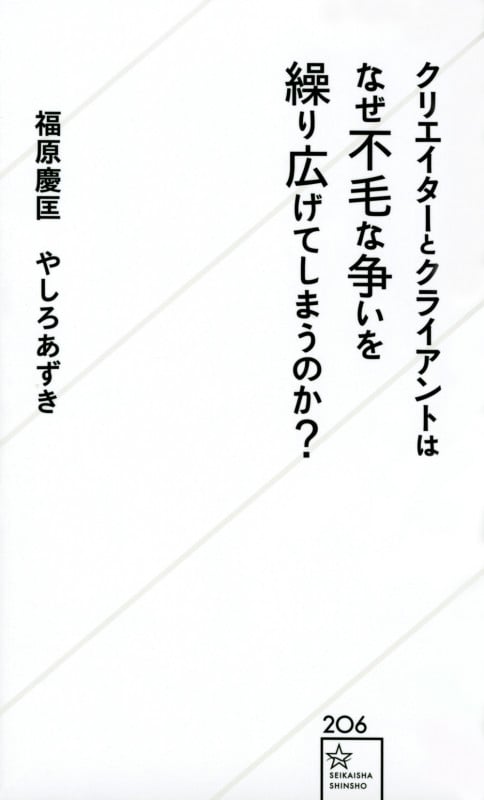 クリエイターとクライアントは
なぜ不毛な争いを
繰り広げてしまうのか?
福原慶匡　やしろあずき
206
SEIKAISHA
SHINSHO